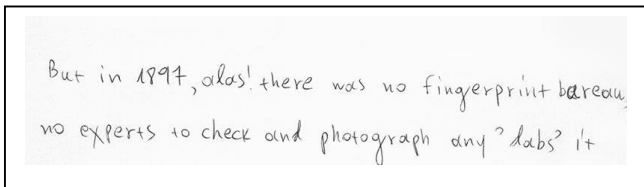 But in 1897, alas! there was no fingerprint bureau,
no experts to check and photograph any 'dabs' it